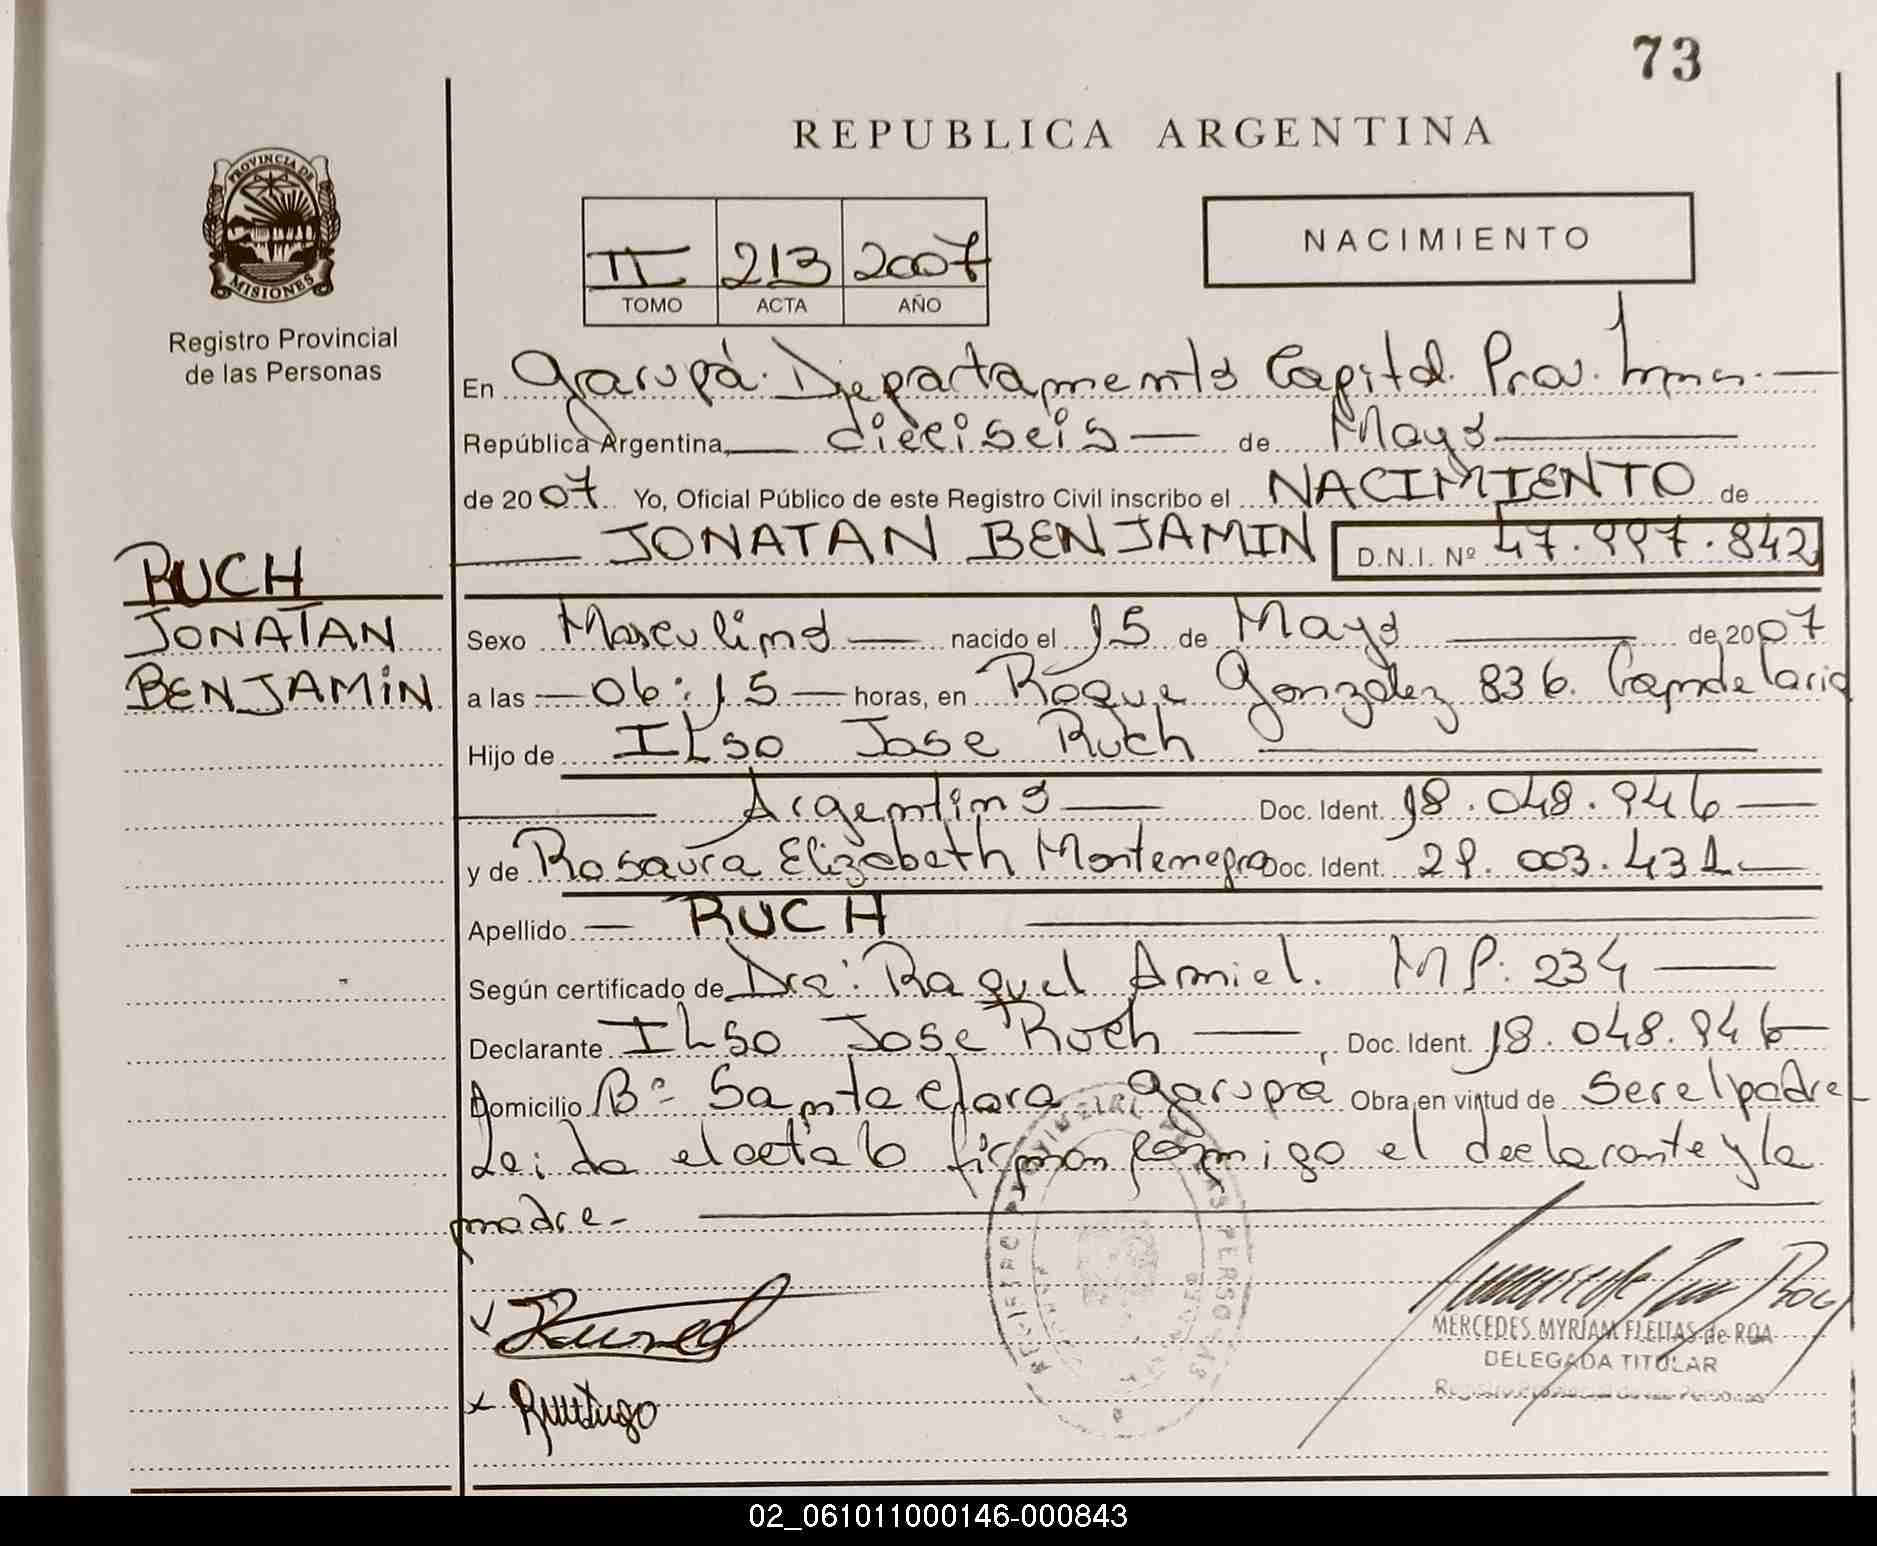 73
REPUBLICA ARGENTINA
PROVINCIA DE
MISIONES
Registro Provincial
de las Personas
II 213 2007
TOMO ACTA AÑO
NACIMIENTO
En Garupá. Departamento Capital. Prov. Mnes.
República Argentina, dieciseis de Mayo
de 2007 Yo, Oficial Público de este Registro Civil inscribo el NACIMIENTO de
JONATAN BENJAMIN D.N.I. Nº 47.997.842
RUCH
JONATAN
BENJAMIN
Sexo Masculino nacido el 15 de Mayo de 2007
a las 06:15 horas, en Roque Gonzalez 836. Candelaria
Hijo de ILso Jose Ruch
Argentino Doc. Ident. 18.048.946
y de Rosaura Elizabeth Montenegro Doc. Ident. 29.003.431
Apellido RUCH
Según certificado de Dra: Raquel Amiel. MP: 234
Declarante ILso Jose Ruch, Doc. Ident. 18.048.946
Domicilio Bº Santa clara Garupá Obra en virtud de ser el padre
Leida el acta la firman conmigo el declarante y la
madre-
REGISTRO PROVINCIAL DE LAS PERSONAS
MERCEDES MYRIAM FLEITAS de ROA
DELEGADA TITULAR
Registro Provincial de las Personas
02_061011000146-000843